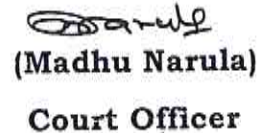 (Madhu Narula)
Court Officer